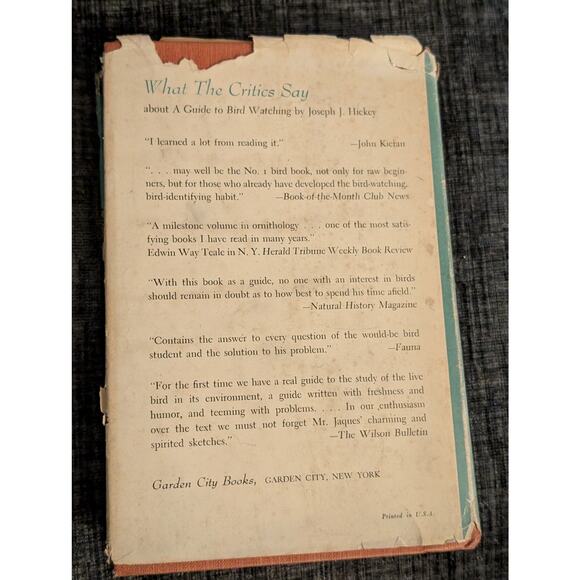 What The Critics Say
about A Guide to Bird Watching by Joseph J. Hickey
"I learned a lot from reading it." —John Kieran
". . . may well be the No. 1 bird book, not only for raw begin-
ners, but for those who already have developed the bird-watching,
bird-identifying habit." —Book-of-the-Month Club News
"A milestone volume in ornithology . . . one of the most satis-
fying books I have read in many years."
Edwin Way Teale in N. Y. Herald Tribune Weekly Book Review
"With this book as a guide, no one with an interest in birds
should remain in doubt as to how best to spend his time afield."
—Natural History Magazine
"Contains the answer to every question of the would-be bird
student and the solution to his problem." —Fauna
"For the first time we have a real guide to the study of the live
bird in its environment, a guide written with freshness and
humor, and teeming with problems. . . . In our enthusiasm
over the text we must not forget Mr. Jaques' charming and
spirited sketches." —The Wilson Bulletin
Garden City Books, GARDEN CITY, NEW YORK
Printed in U.S.A.